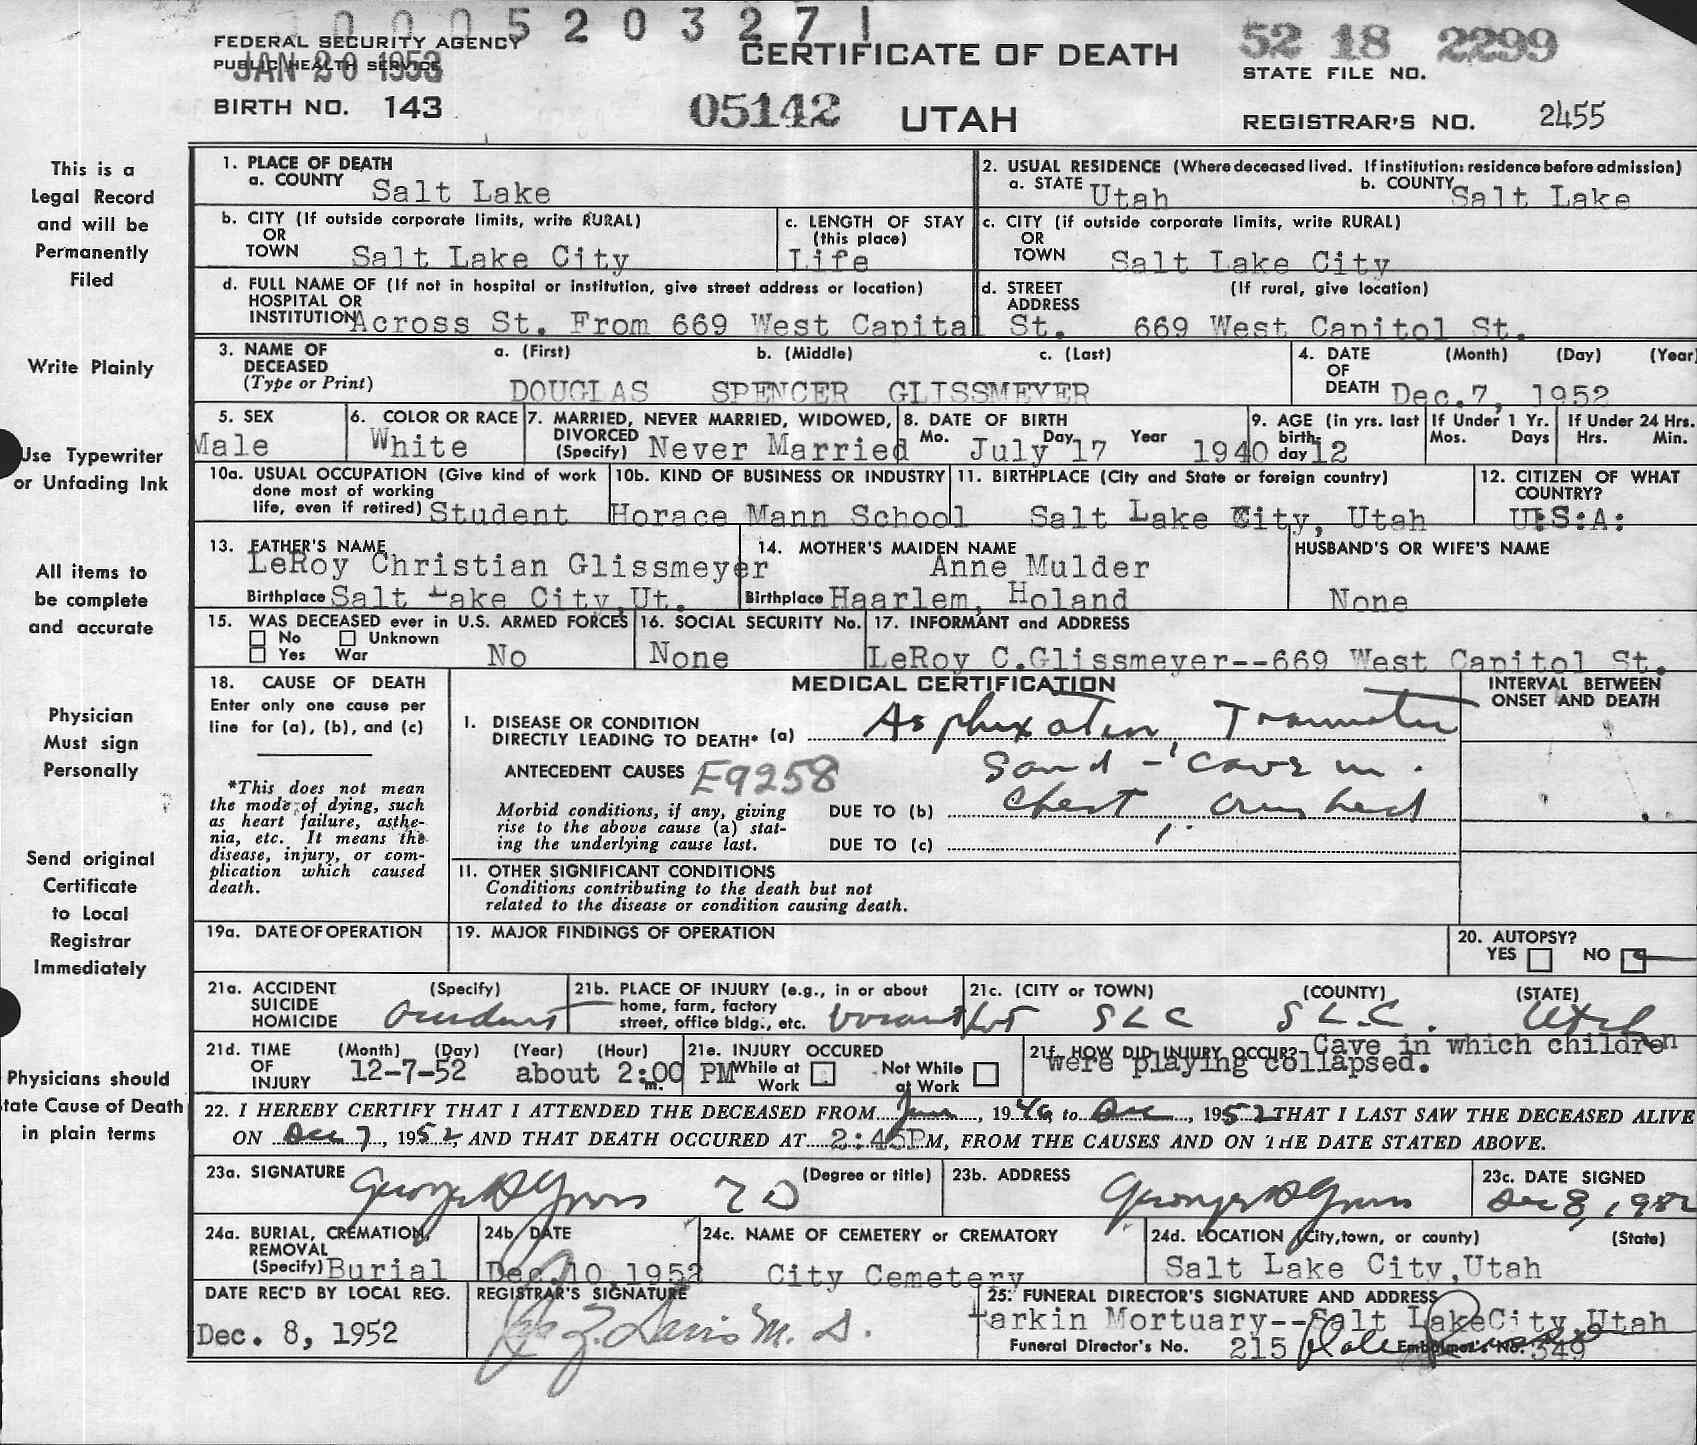 000520327 1
FEDERAL SECURITY AGENCY
PUBLIC HEALTH SERVICE
JAN 20 1953
CERTIFICATE OF DEATH
52 18 2299
STATE FILE NO.
BIRTH NO. 143
05142 UTAH
REGISTRAR'S NO. 2455
This is a
Legal Record
and will be
Permanently
Filed
Write Plainly
Use Typewriter
or Unfading Ink
All items to
be complete
and accurate
Physician
Must sign
Personally
Send original
Certificate
to Local
Registrar
Immediately
Physicians should
tate Cause of Death
in plain terms
1. PLACE OF DEATH
a. COUNTY Salt Lake
2. USUAL RESIDENCE (Where deceased lived. If institution: residence before admission)
a. STATE Utah b. COUNTY Salt Lake
b. CITY (If outside corporate limits, write RURAL)
OR
TOWN Salt Lake City
c. LENGTH OF STAY
(this place)
Life
c. CITY (if outside corporate limits, write RURAL)
OR
TOWN Salt Lake City
d. FULL NAME OF (If not in hospital or institution, give street address or location)
HOSPITAL OR
INSTITUTION Across St. From 669 West Capital St.
d. STREET (If rural, give location)
ADDRESS
669 West Capitol St.
3. NAME OF DECEASED
(Type or Print)
a. (First) b. (Middle) c. (Last)
DOUGLAS SPENCER GLISSMEYER
4. DATE OF DEATH (Month) (Day) (Year)
Dec.7, 1952
5. SEX
Male
6. COLOR OR RACE
White
7. MARRIED, NEVER MARRIED, WIDOWED,
DIVORCED
(Specify) Never Married
8. DATE OF BIRTH
Mo. Day Year
July 17 1940
9. AGE (in yrs. last
birth-
day 12
If Under 1 Yr.
Mos. Days
If Under 24 Hrs.
Hrs. Min.
10a. USUAL OCCUPATION (Give kind of work
done most of working
life, even if retired) Student
10b. KIND OF BUSINESS OR INDUSTRY
Horace Mann School
11. BIRTHPLACE (City and State or foreign country)
Salt Lake City, Utah
12. CITIZEN OF WHAT
COUNTRY?
U:S:A:
13. FATHER'S NAME
LeRoy Christian Glissmeyer
Birthplace Salt Lake City,Ut.
14. MOTHER'S MAIDEN NAME
Anne Mulder
Birthplace Haarlem, Holand
HUSBAND'S OR WIFE'S NAME
None
15. WAS DECEASED ever in U.S. ARMED FORCES
No Unknown
Yes War No
16. SOCIAL SECURITY No.
None
17. INFORMANT and ADDRESS
LeRoy C.Glissmeyer--669 West Capitol St.
18. CAUSE OF DEATH
Enter only one cause per
line for (a), (b), and (c)
*This does not mean
the mode of dying, such
as heart failure, asthe-
nia, etc. It means the
disease, injury, or com-
plication which caused
death.
MEDICAL CERTIFICATION
INTERVAL BETWEEN
ONSET AND DEATH
I. DISEASE OR CONDITION
DIRECTLY LEADING TO DEATH* (a) Asphyxation, Traumatic
Sand - cave in.
ANTECEDENT CAUSES E9258
Morbid conditions, if any, giving
rise to the above cause (a) stat-
ing the underlying cause last.
DUE TO (b) Chest crushed
DUE TO (c)
II. OTHER SIGNIFICANT CONDITIONS
Conditions contributing to the death but not
related to the disease or condition causing death.
19a. DATE OF OPERATION
19. MAJOR FINDINGS OF OPERATION
20. AUTOPSY?
YES NO
21a. ACCIDENT (Specify)
SUICIDE
HOMICIDE Accident
21b. PLACE OF INJURY (e.g., in or about
home, farm, factory
street, office bldg., etc. vacant lot
21c. (CITY or TOWN) (COUNTY) (STATE)
SLC S.L.C. Utah
21d. TIME OF INJURY
(Month) (Day) (Year) (Hour)
12-7-52 about 2:00 PM
m.
21e. INJURY OCCURED
While at Work
Not While at Work
21f. HOW DID INJURY OCCUR? Cave in which children
were playing collapsed.
22. I HEREBY CERTIFY THAT I ATTENDED THE DECEASED FROM June, 1946 to Dec, 1952 THAT I LAST SAW THE DECEASED ALIVE
ON Dec 7, 1952, AND THAT DEATH OCCURED AT 2:45PM, FROM THE CAUSES AND ON THE DATE STATED ABOVE.
23a. SIGNATURE (Degree or title)
23b. ADDRESS
23c. DATE SIGNED
Dec 8, 1952
24a. BURIAL, CREMATION,
REMOVAL
(Specify) Burial
24b. DATE
Dec.10,1952
24c. NAME OF CEMETERY OR CREMATORY
City Cemetery
24d. LOCATION (City, town, or county) (State)
Salt Lake City,Utah
DATE REC'D BY LOCAL REG.
Dec. 8, 1952
REGISTRAR'S SIGNATURE
Davis M.D.
25. FUNERAL DIRECTOR'S SIGNATURE AND ADDRESS
Larkin Mortuary--Salt Lake City,Utah
Funeral Director's No. 215 Embalmer's No. 349